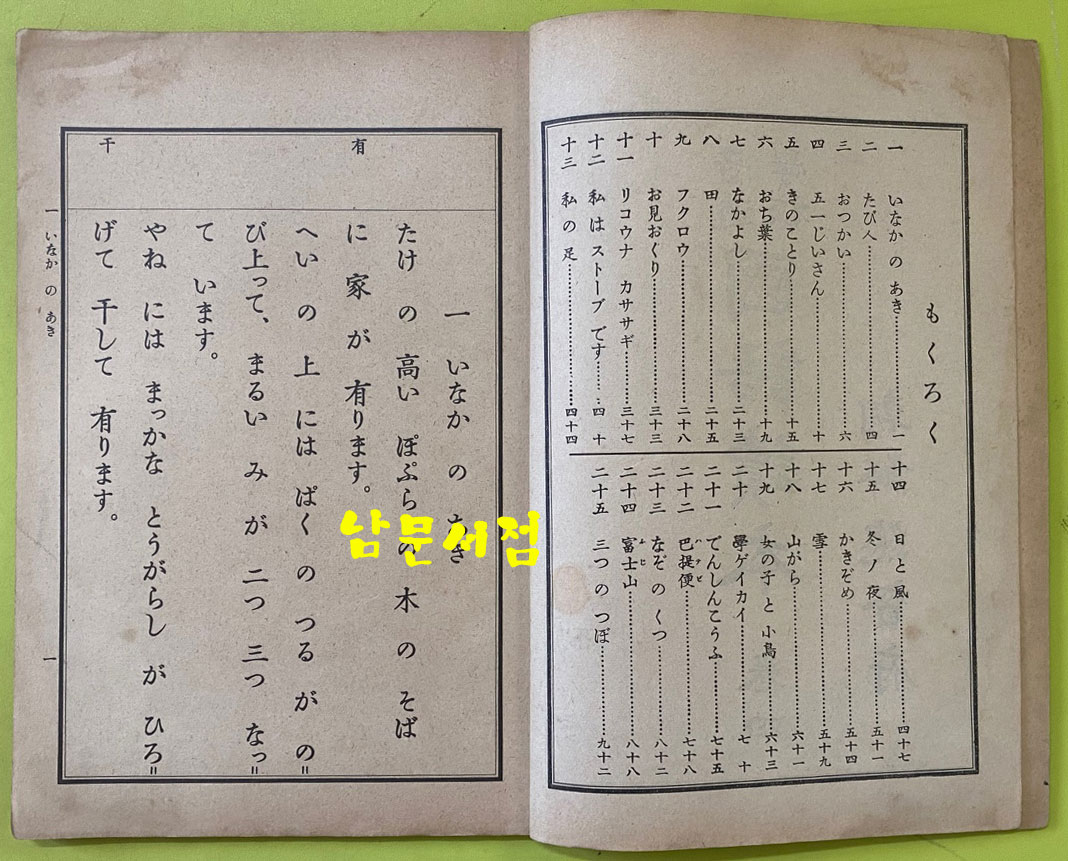 もくろく
一 いなか の あき……一
二 たび人……四
三 おつかい……六
四 五一じいさん……十
五 きのことり……十五
六 おち葉……十九
七 なかよし……二十三
八 田……二十五
九 フクロウ……二十八
十 お見おくり……三十三
十一 リコウナ カササギ……三十七
十二 私 は ストーブ です……四十
十三 私 の 足……四十四
十四 日 と 風……四十七
十五 冬 ノ 夜……五十一
十六 かきぞめ……五十四
十七 雪……五十九
十八 山がら……六十一
十九 女の子 と 小鳥……六十三
二十 學ゲイカイ……七十
二十一 でんしんこうふ……七十五
二十二 巴提便……七十八
二十三 なぞ の くつ……八十二
二十四 富士山……八十八
二十五 三つ の つぼ……九十二
有
干
一 いなか の あき
たけ の 高い ぽぷら の 木 の そば
に 家 が 有ります。
へい の 上 には ぱく の つる が の゠
び上って、まるい み が 二つ 三つ なっ゠
て います。
やね には まっかな とうがらし が ひろ゠
げて 干して 有ります。
一 いなか の あき
一
남문서점